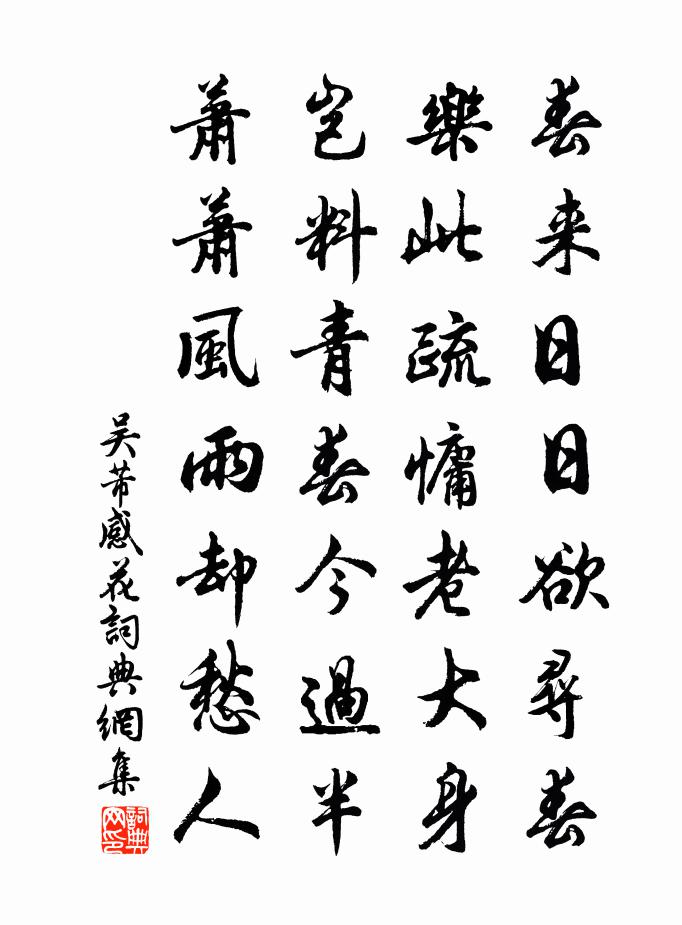 春来日日欲尋春
樂此疏慵老大身
豈料青春今過半
蕭蕭風雨却愁人
吴芾感花詞典網集
詞典网印